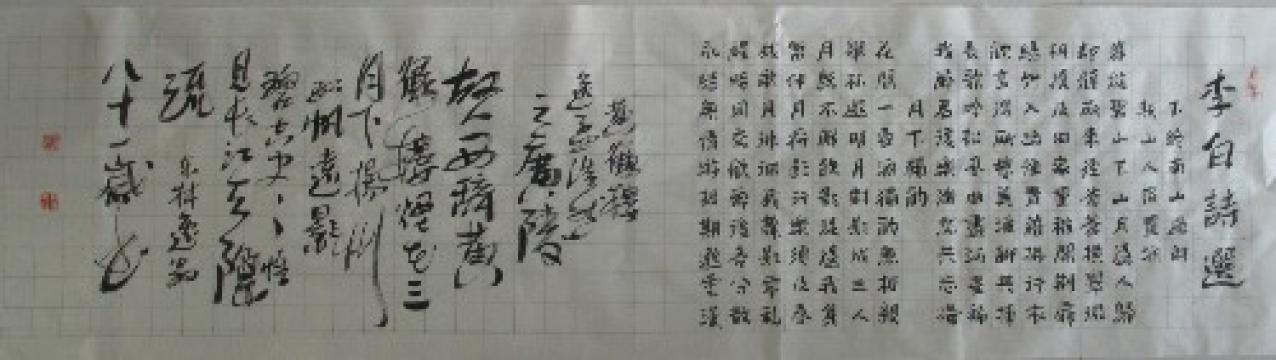 李白詩選
下終南山過斛
斯山人宿置酒
暮從碧山下山月隨人歸
却顧所來徑蒼蒼橫翠微
相攜及田家童稚開荊扉
綠竹入幽徑青蘿拂行衣
歡言得所憩美酒聊共揮
長歌吟松風曲盡河星稀
我醉君復樂陶然共忘機
月下獨酌
花間一壺酒獨酌無相親
舉杯邀明月對影成三人
月既不解飲影徒隨我身
暫伴月將影行樂須及春
我歌月徘徊我舞影零亂
醒時同交歡醉後各分散
永結無情遊相期邈雲漢
黃鶴樓
送孟浩然
之廣陵
故人西辭黃
鶴樓煙花三
月下揚州
孤帆遠影
碧空尽惟
見長江天際
流
八十一歲書